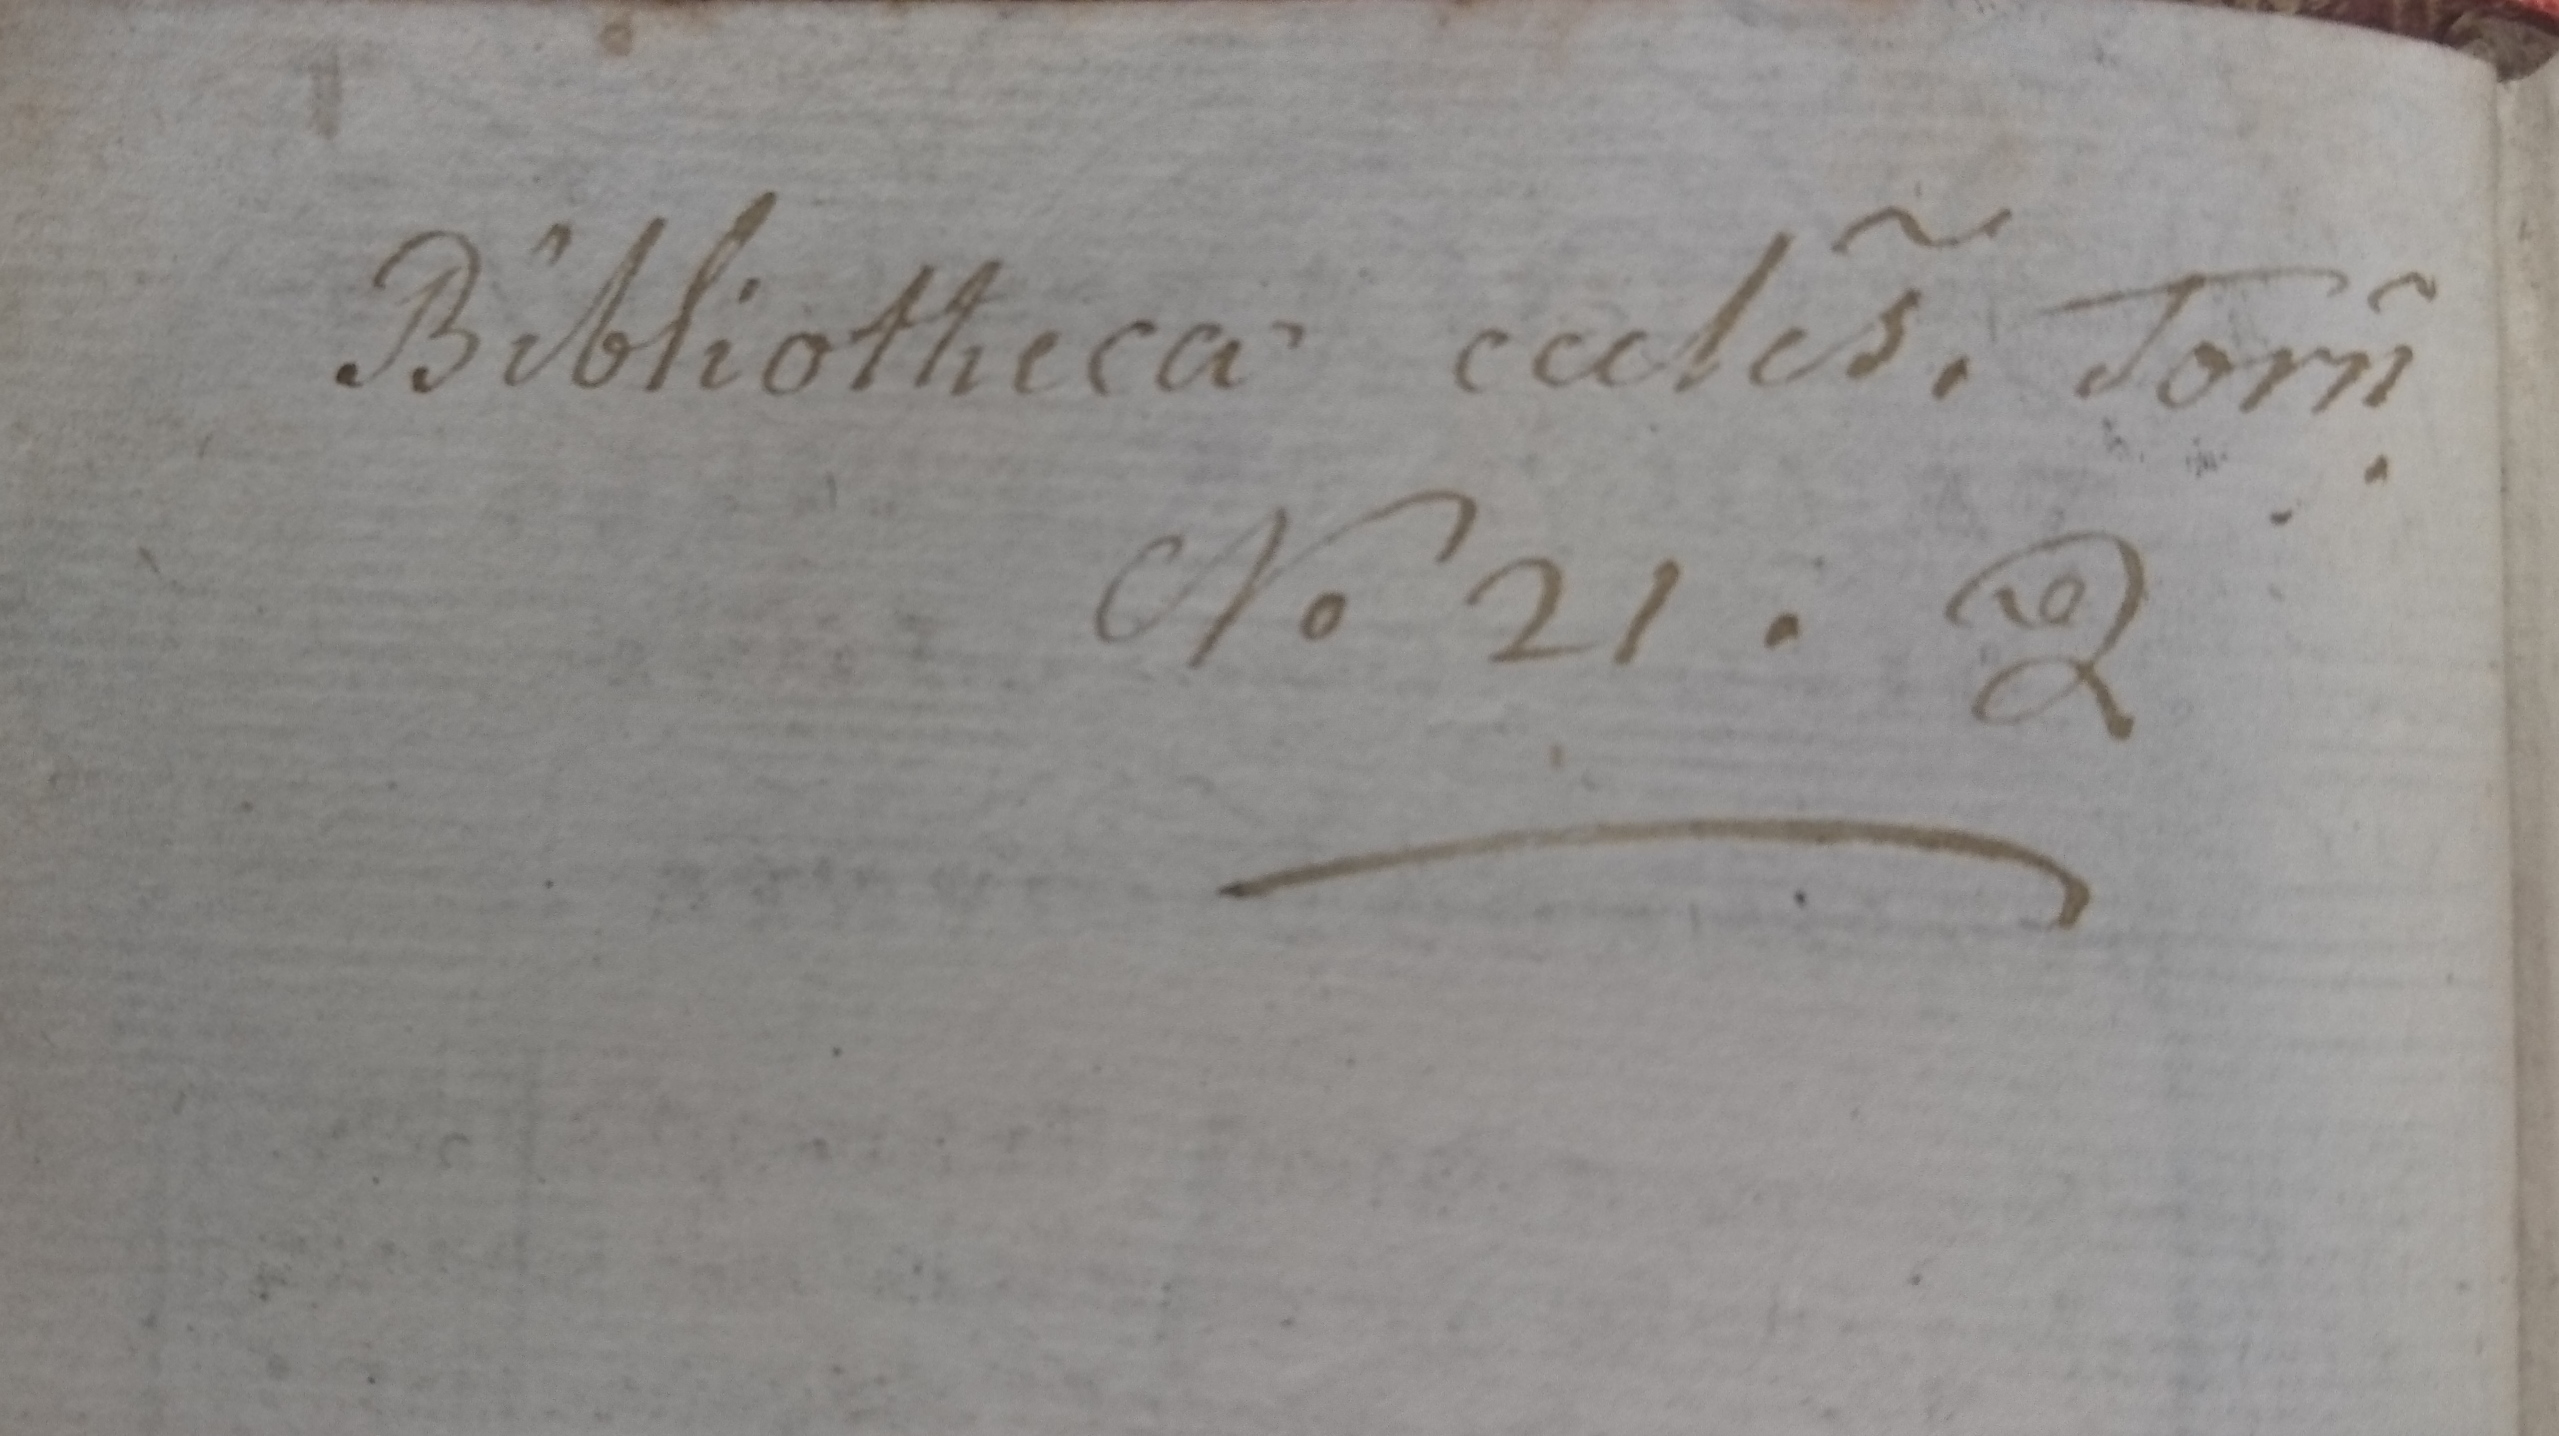 Bibliotheca eccles̃. Torñ.
No 21. 2